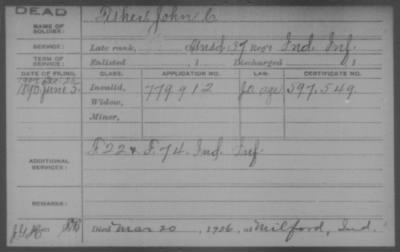 DEAD
NAME OF SOLDIER: Fisher, John C
SERVICE: Late rank, Unsd. 37 reg's Ind. Inf.
TERM OF SERVICE: Enlisted , 1 Discharged , 1
DATE OF FILING. CLASS. APPLICATION NO. LAW. CERTIFICATE NO.
1890 June 5. Invalid, 779912 Jo age 397.549
Widow,
Minor,
ADDITIONAL SERVICES: F 22 & F. 74. Ind. Inf.
REMARKS:
Died Mar 20, 1926, at Milford, Ind.